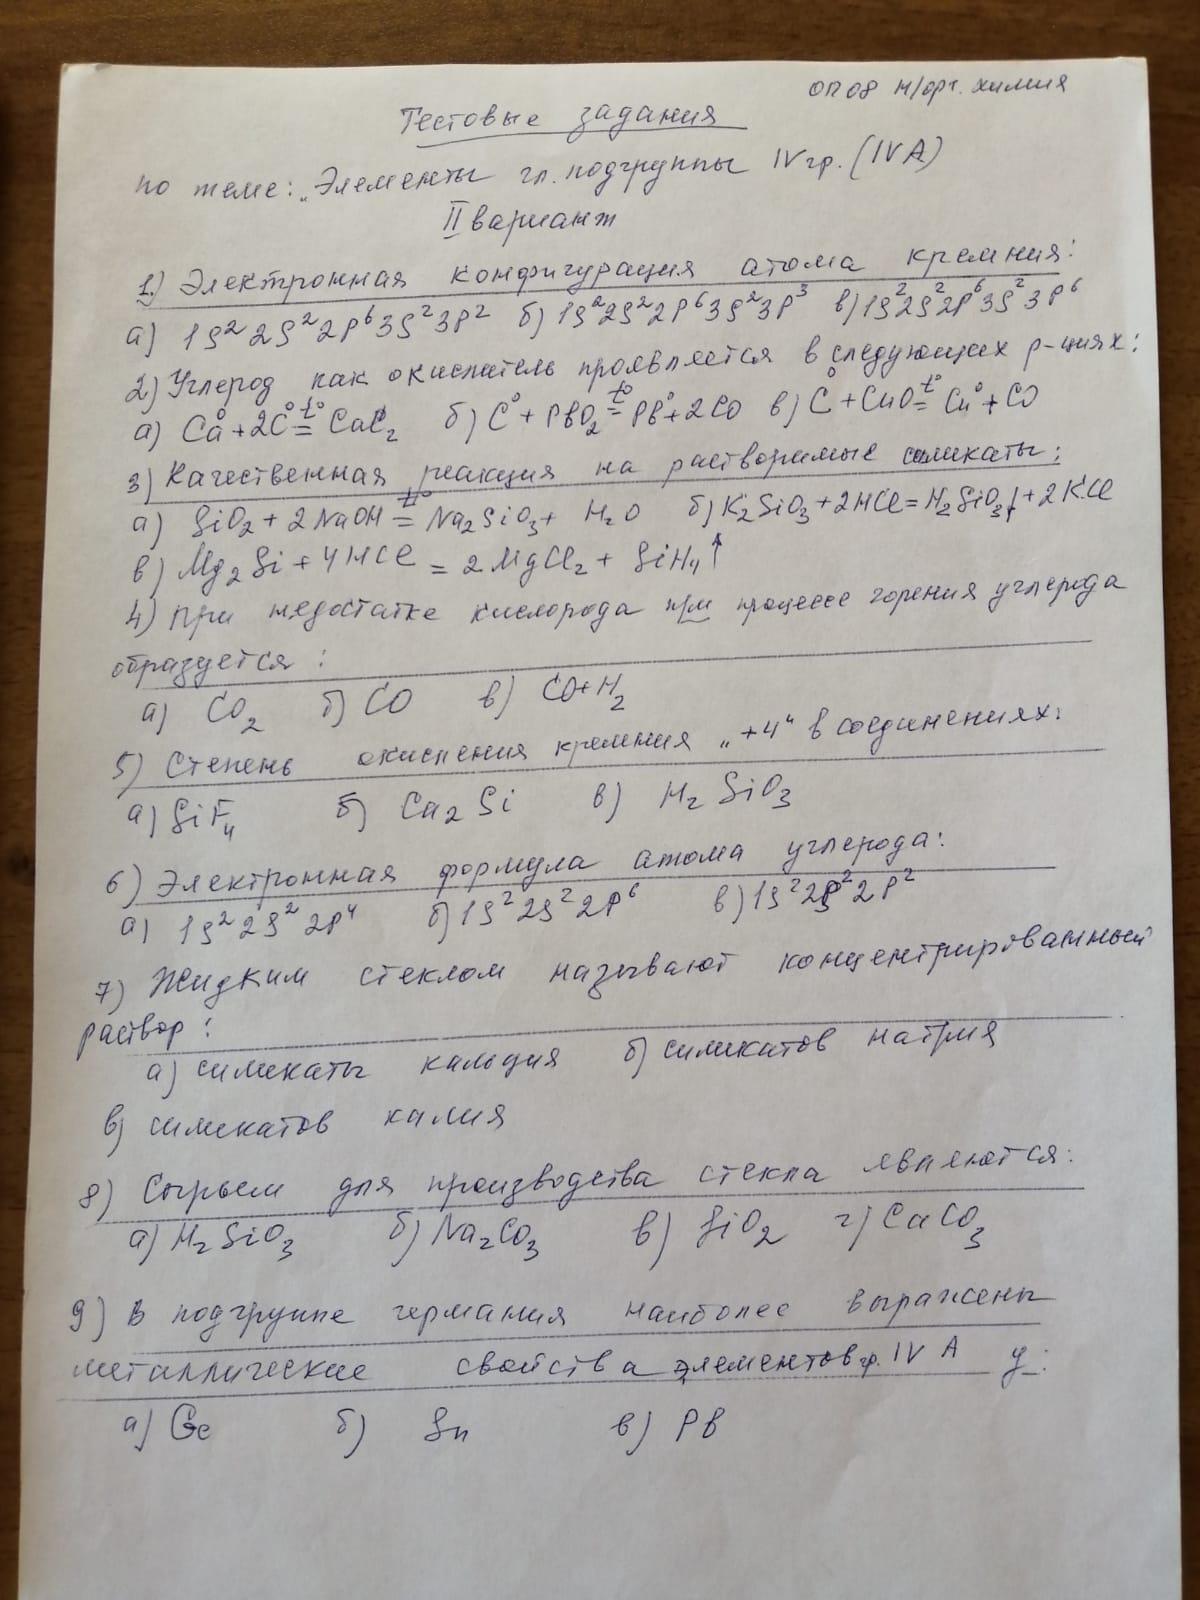 ОП 08 н/орг. химия
Тестовые задания
по теме: „Элементы гл. подгруппы IV гр. (IV A)
II вариант
1.) Электронная конфигурация атома кремния:
а) 1s² 2s² 2p⁶ 3s² 3p² б) 1s² 2s² 2p⁶ 3s² 3p³ в) 1s² 2s² 2p⁶ 3s² 3p⁶
2) Углерод как окислитель проявляется в следующих р-циях:
а) Ca⁰ + 2C⁰ =t° CaC₂ б) C⁰ + PbO₂ =t° Pb⁰ + 2CO в) C⁰ + CuO =t° Cu⁰ + CO
3) Качественная реакция на растворимые силикаты:
а) SiO₂ + 2NaOH =t° Na₂SiO₃ + H₂O б) K₂SiO₃ + 2HCl = H₂SiO₃↓ + 2KCl
в) Mg₂Si + 4HCl = 2MgCl₂ + SiH₄↑
4) При недостатке кислорода при процессе горения углерода
образуется :
а) CO₂ б) CO в) CO+H₂
5) Степень окисления кремния „+4" в соединениях:
а) SiF₄ б) Ca₂Si в) H₂SiO₃
6) Электронная формула атома углерода:
а) 1s² 2s² 2p⁴ б) 1s² 2s² 2p⁶ в) 1s² 2s² 2p²
7) Жидким стеклом называют концентрированный
раствор :
а) силикаты кальция б) силикатов натрия
в) силикатов калия
8) Сырьем для производства стекла являются:
а) H₂SiO₃ б) Na₂CO₃ в) SiO₂ г) CaCO₃
9) В подгруппе германия наиболее выражены
металлические свойства элементов гр. IV A у:
а) Ge б) Sn в) Pb